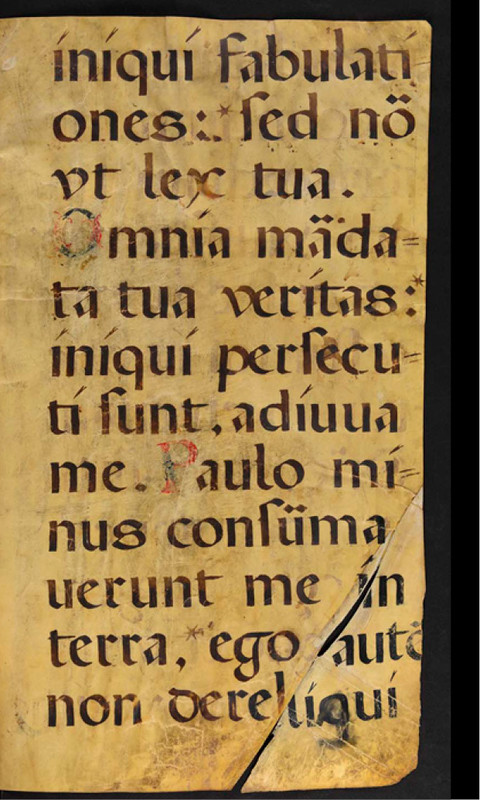 iniqui fabulati
ones:* sed nö
vt lex tua.
Omnia mäda=
ta tua veritas:*
iniqui persecu=
ti sunt, adiuua
me. Paulo mi=
nus consüma
uerunt me in
terra,* ego autē
non dereliqui